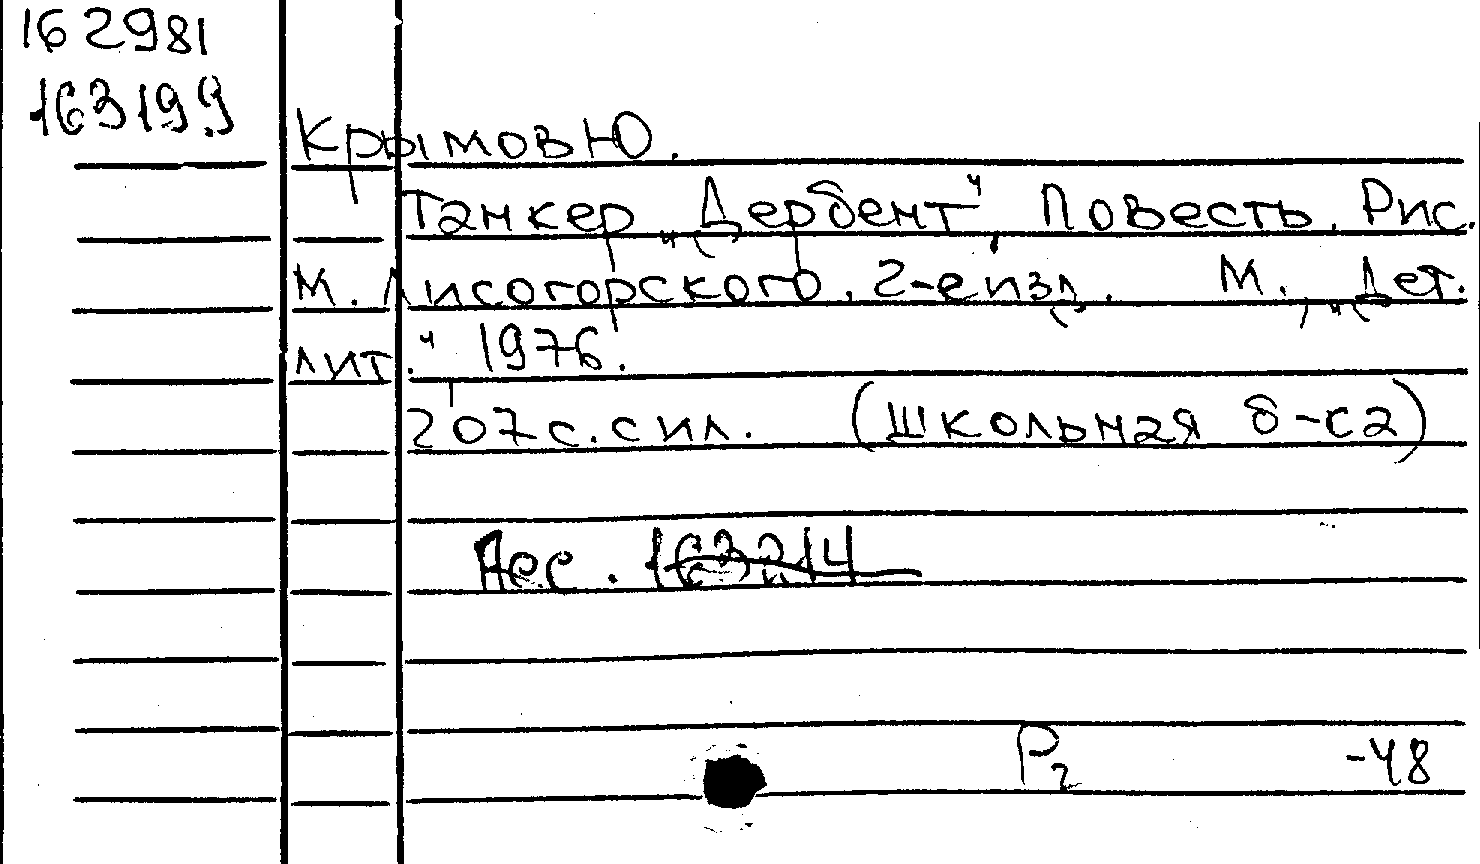 162981
163199
Крымов Ю.
Танкер „Дербент“. Повесть. Рис.
М. Лисогорского. 2-е изд. М., „Дет.
лит.“ 1976.
207 с. с ил. (школьная б-са)
Аес. 163214
Р2 -48